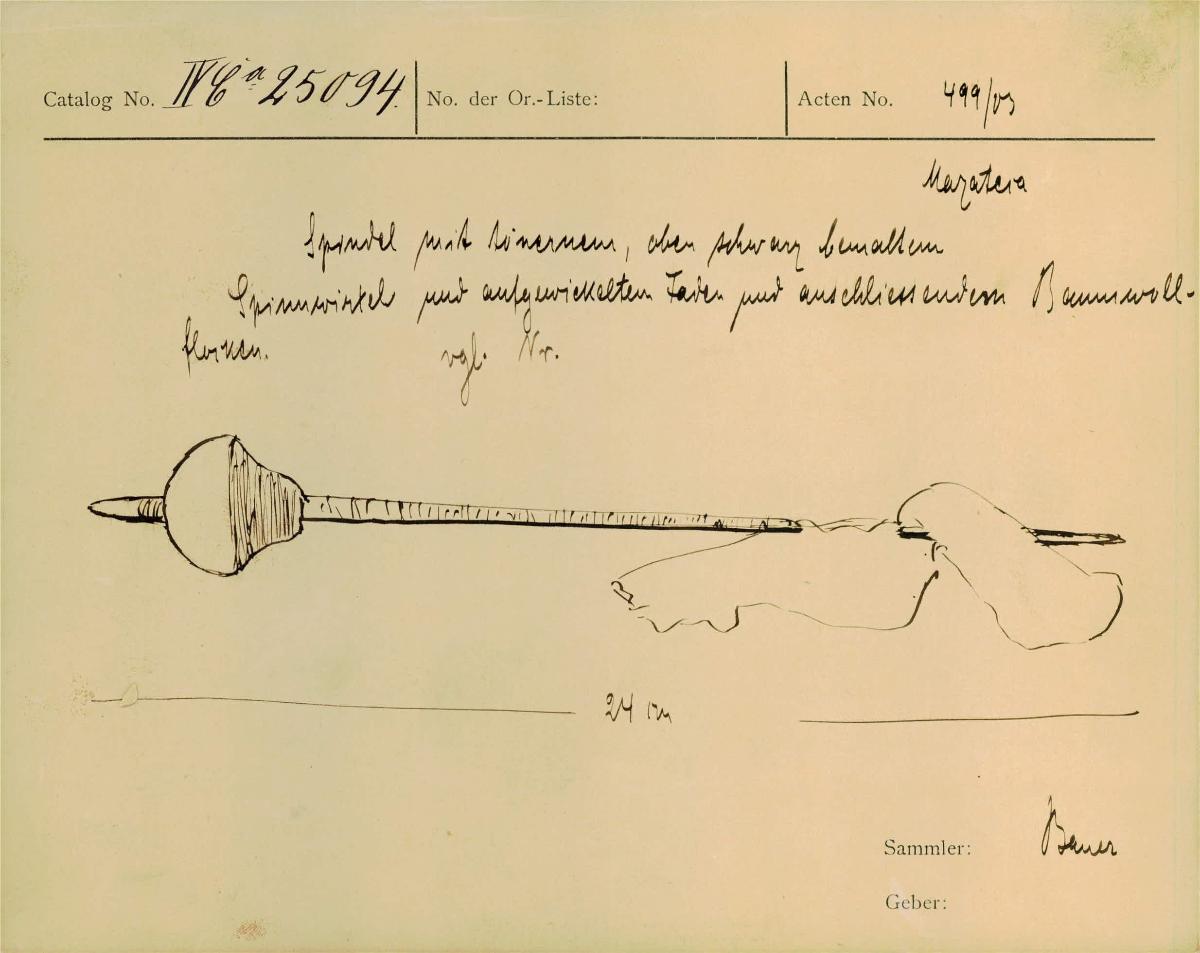 Catalog No. IV Ca 25094. No. der Or.-Liste: Acten No. 499/03
Mazateca
Spindel mit tönernem, oben schwarz bemaltem
Spinnwirtel und aufgewickeltem Faden und anschliessendem Baumwoll-
flocken. vgl. Nr.
24 cm
Sammler: Bauer
Geber: